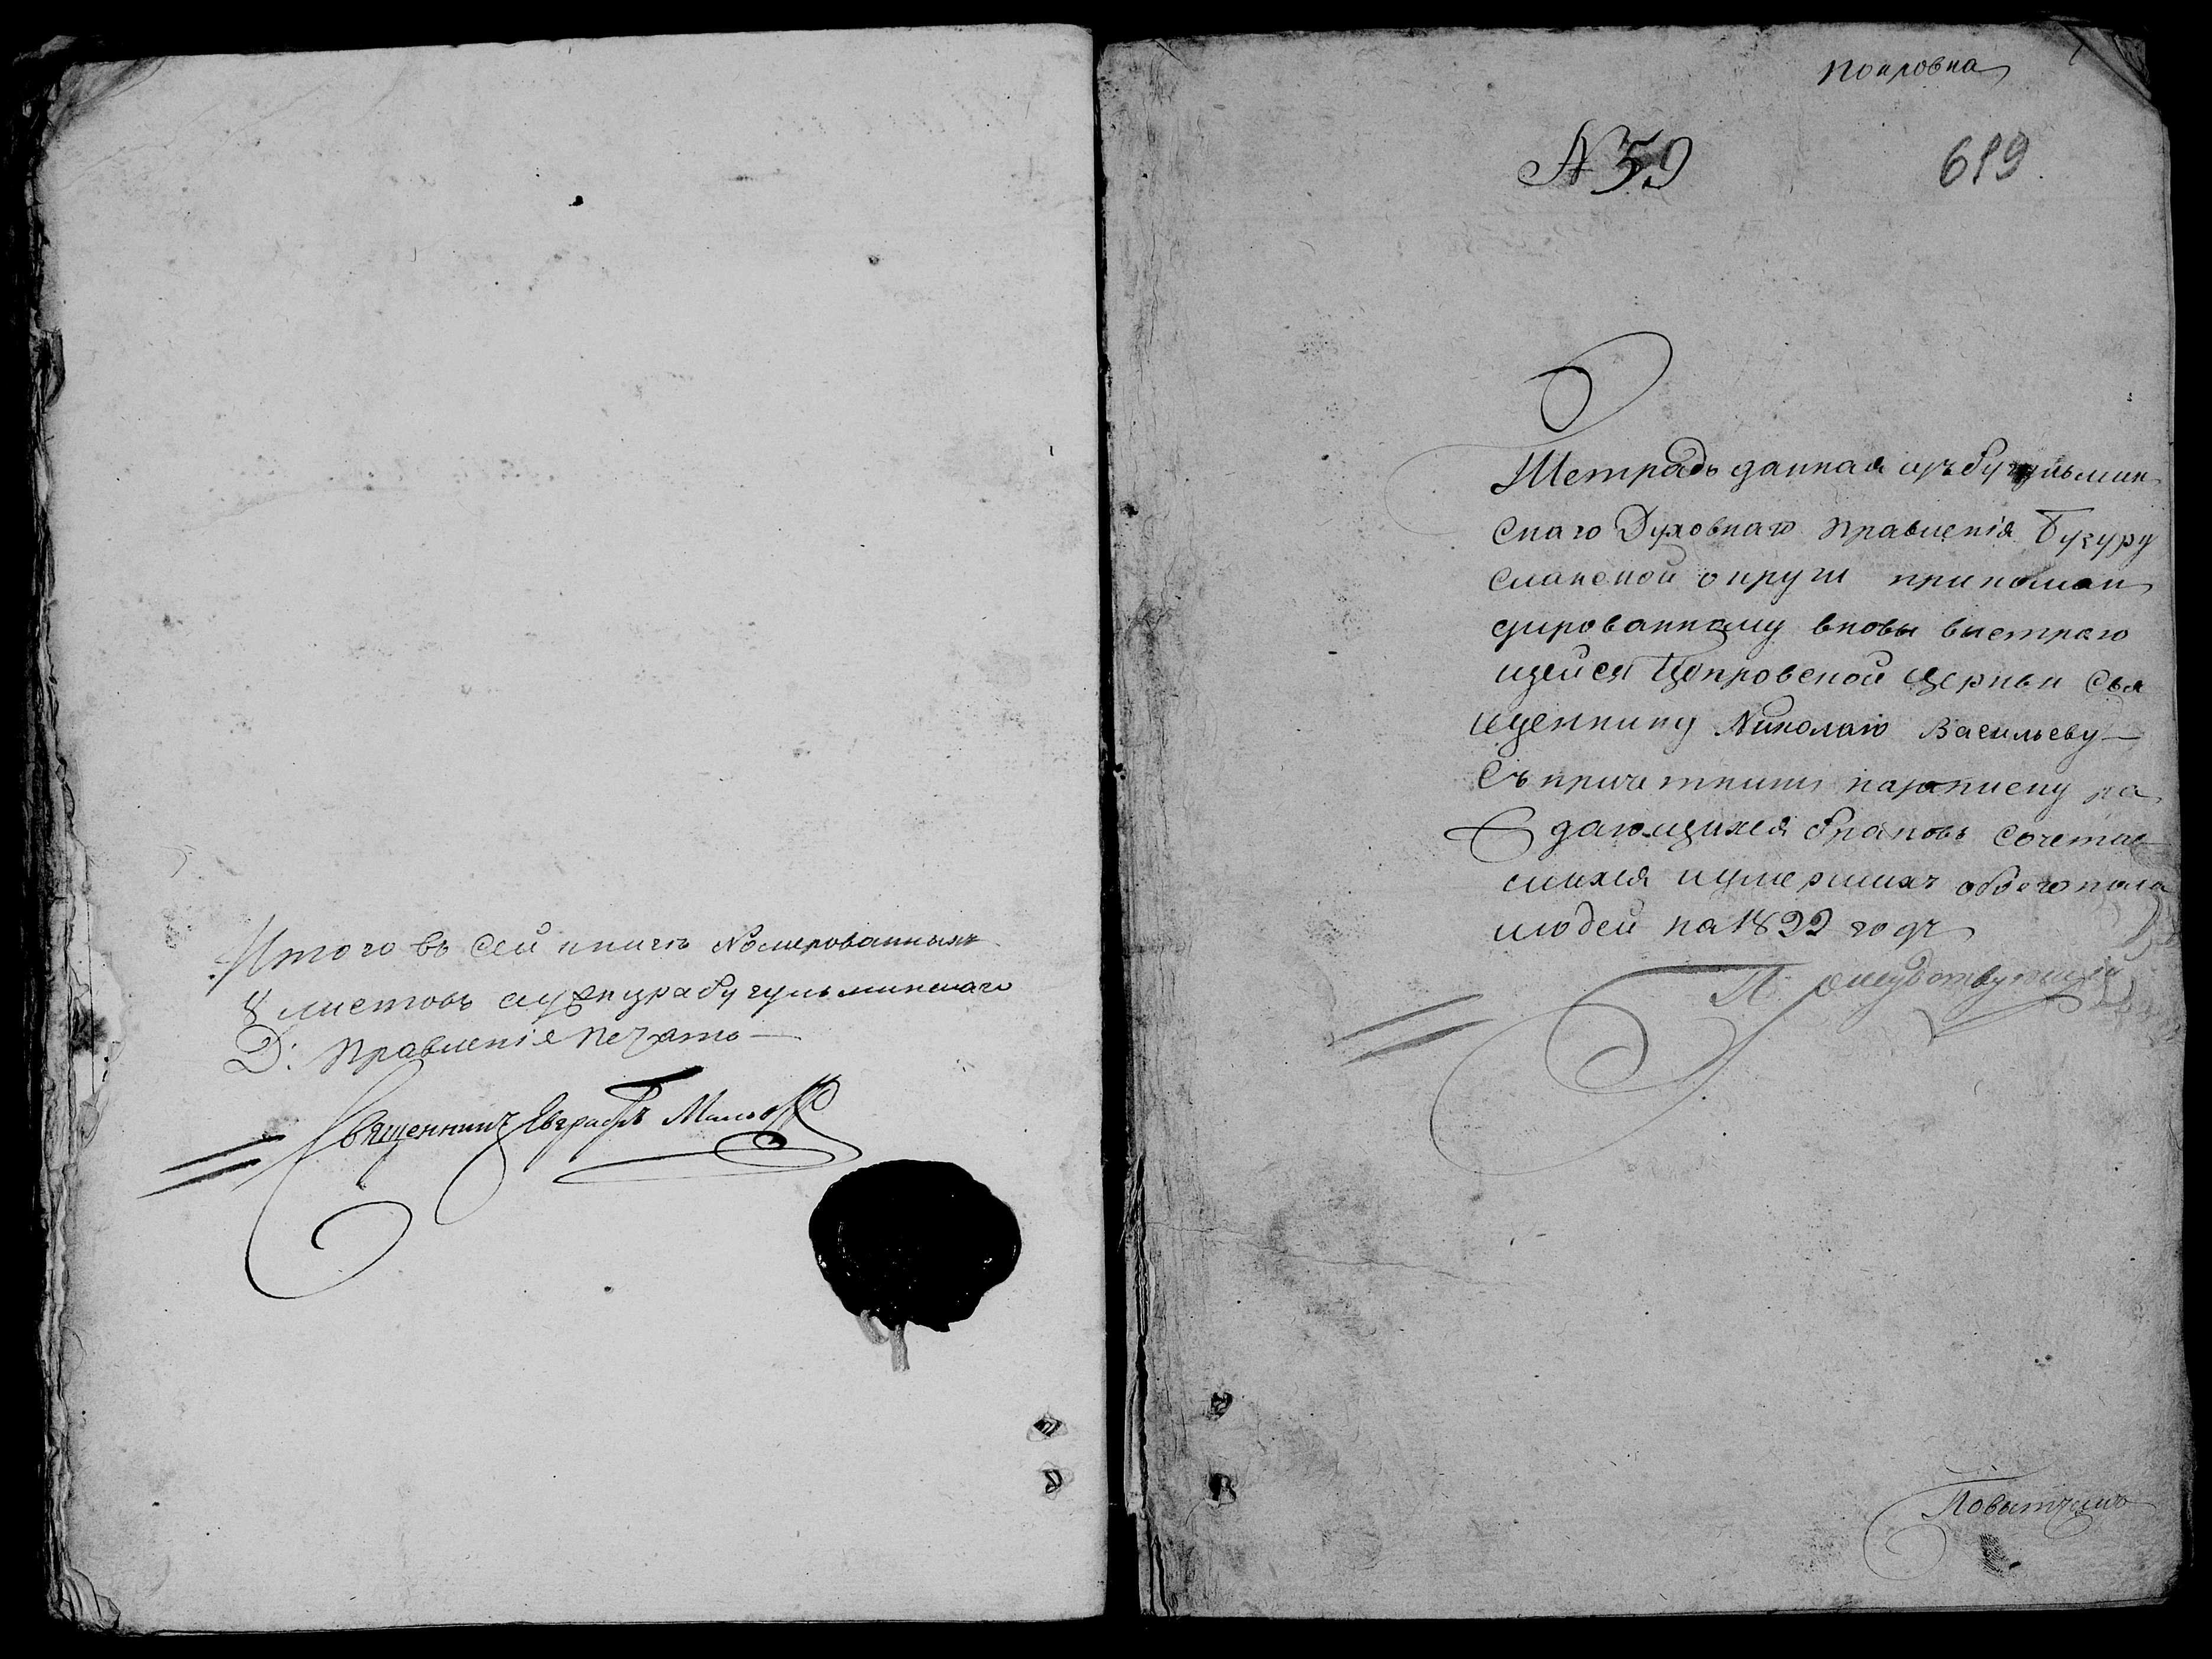 Итого въ сей книге номерованныхъ
8 листовъ за шнура бугульминскаго
Д: правленія печатю
Священникъ Евграфъ Малов
покровка
N 59
619
Тетрадь данная изъ бугульмин
скаго Духовнаго правленія Бугуру
сланской округи прикоман
дированному вновь выстраю
щейся Покровской Церкви Свя
щеннику Николаю Васильеву
съ причетники на записку ра
ждающихся браковъ сочетав
шихся и умершихъ обоего пола
людей на 1822 годъ
Присудствующий
Повытчикъ